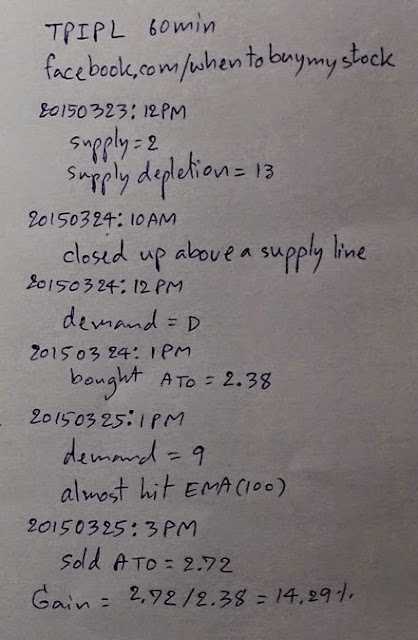 TPIPL 60min
facebook.com/whentobuymystock
20150323: 12PM
supply = 2
supply depletion = 13
20150324: 10AM
closed up above a supply line
20150324: 12PM
demand = D
20150324: 1PM
bought ATO = 2.38
20150325: 1PM
demand = 9
almost hit EMA(100)
20150325: 3PM
sold ATO = 2.72
Gain = 2.72/2.38 = 14.29%